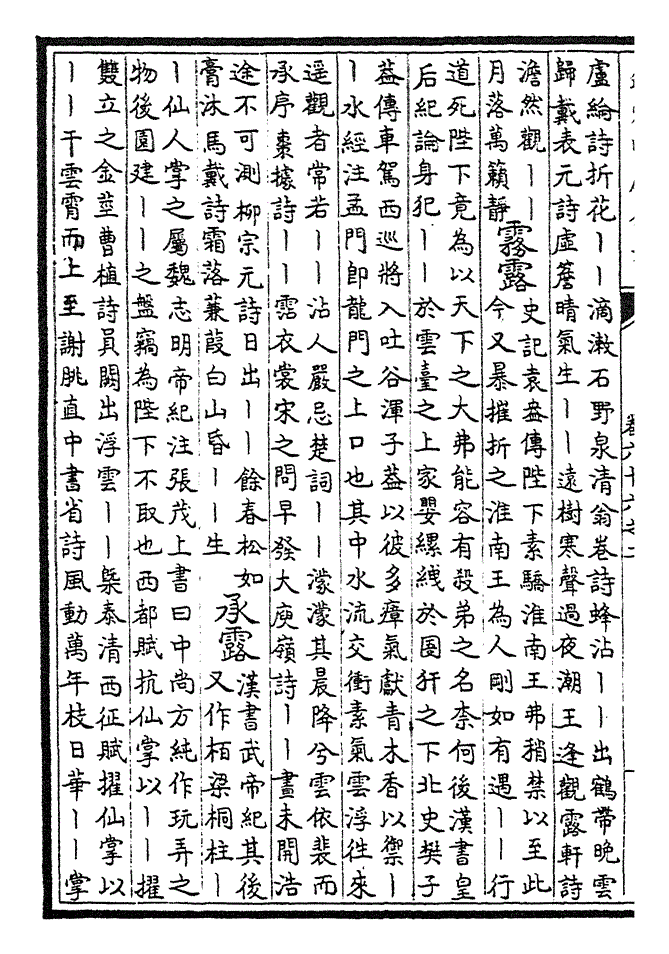 盧綸詩折花丨丨滴漱石野泉清翁卷詩蜂沾丨丨出鶴帶晚雲
歸戴表元詩虛簷晴氣生丨丨遠樹寒聲過夜潮王逢觀露軒詩
澹然觀丨丨
月落萬籟靜
霧露
史記袁盎傳陛下素驕淮南王弗稍禁以至此
今又暴摧折之淮南王為人剛如有遇丨丨行
道死陛下竟為以天下之大弗能容有殺弟之名柰何後漢書皇
后紀論身犯丨丨於雲臺之上家嬰縲絏於圄犴之下北史樊子
葢傳車駕西巡將入吐谷渾子葢以彼多瘴氣獻青木香以禦丨
丨水經注孟門即龍門之上口也其中水流交衝素氣雲浮徃來
遥觀者常若丨丨沾人嚴忌楚詞丨丨濛濛其晨降兮雲依斐而
承序棗據詩丨丨霑衣裳宋之問早發大庾嶺詩丨丨晝未開浩
途不可測柳宗元詩日出丨丨餘春松如
膏沐馬戴詩霜落蒹葭白山昏丨丨生
承露
漢書武帝紀其後
又作栢梁桐柱丨
丨仙人掌之屬魏志明帝紀注張茂上書曰中尚方純作玩弄之
物後園建丨丨之盤竊為陛下不取也西都賦抗仙掌以丨丨擢
雙立之金莖曹植詩員闕出浮雲丨丨槩泰清西征賦擢仙掌以
丨丨干雲霄而上至謝朓直中書省詩風動萬年枝日華丨丨掌